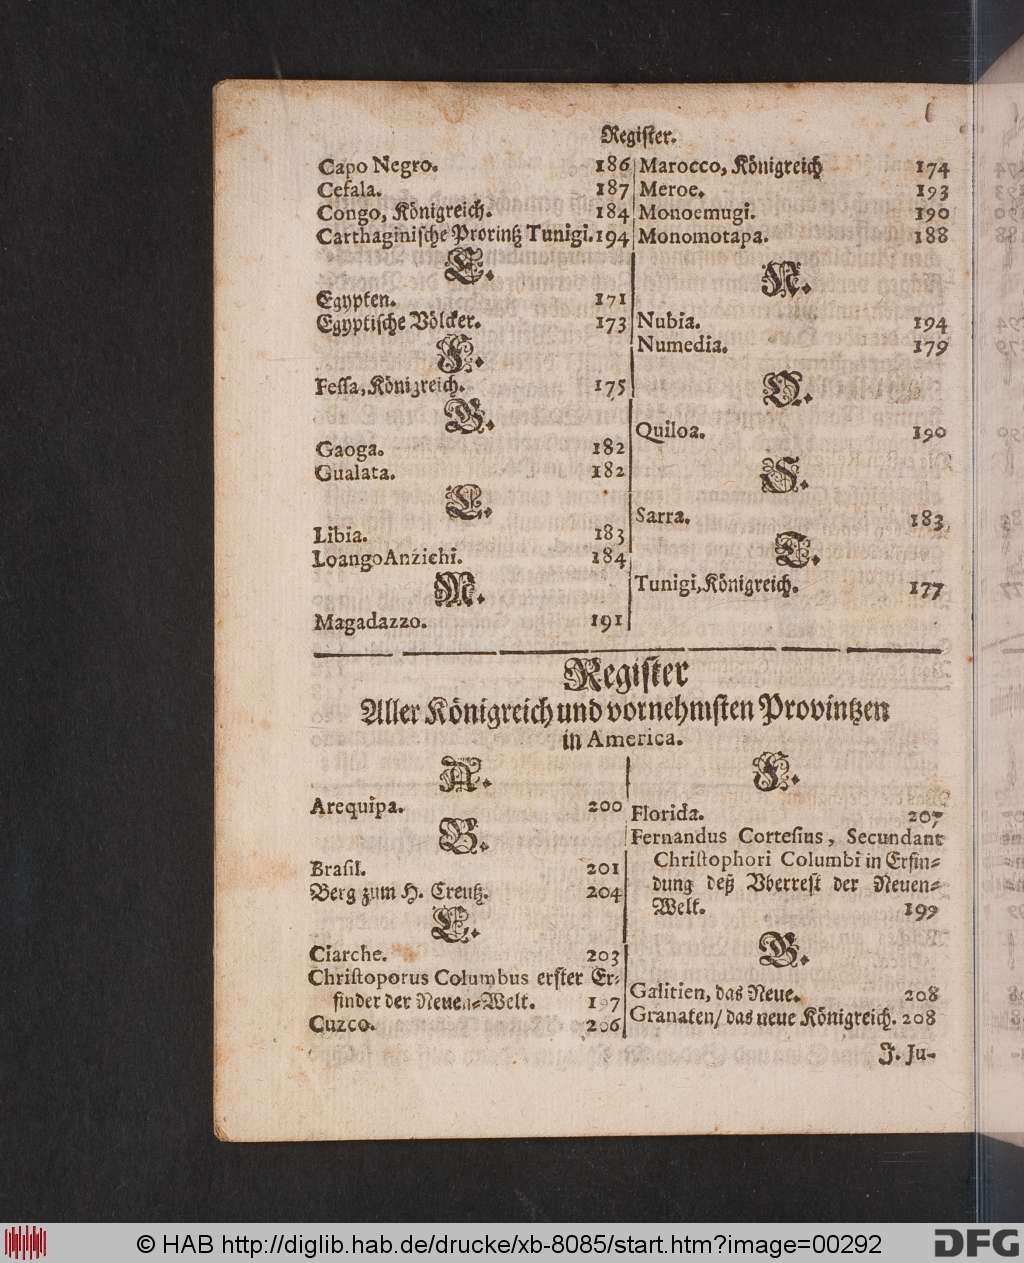 Register.
Capo Negro. 186
Cefala. 187
Congo, Königreich. 184
Carthaginische Provintz Tunigi. 194
E.
Egypten. 171
Egyptische Völcker. 173
F.
Fessa, Königreich. 175
G.
Gaoga. 182
Gualata. 182
L.
Libia. 183
Loango Anzichi. 184
M.
Magadazzo. 191
Marocco, Königreich 174
Meroe. 193
Monoemugi. 190
Monomotapa. 188
N.
Nubia. 194
Numedia. 179
Q.
Quiloa. 190
S.
Sarra. 183
T.
Tunigi, Königreich. 177
Register
Aller Königreich und vornehmsten Provintzen
in America.
A.
Arequipa. 200
B.
Brasil. 201
Berg zum H. Creutz. 204
C.
Ciarche. 203
Christoporus Columbus erster Er-
finder der Neuen-Welt. 197
Cuzco. 206
F.
Florida. 207
Fernandus Cortesius, Secundant
Christophori Columbi in Erfin-
dung deß Vberrest der Neuen-
Welt. 199
G.
Galitien, das Neue. 208
Granaten/ das neue Königreich. 208
J. Ju-
© HAB http://diglib.hab.de/drucke/xb-8085/start.htm?image=00292
DFG